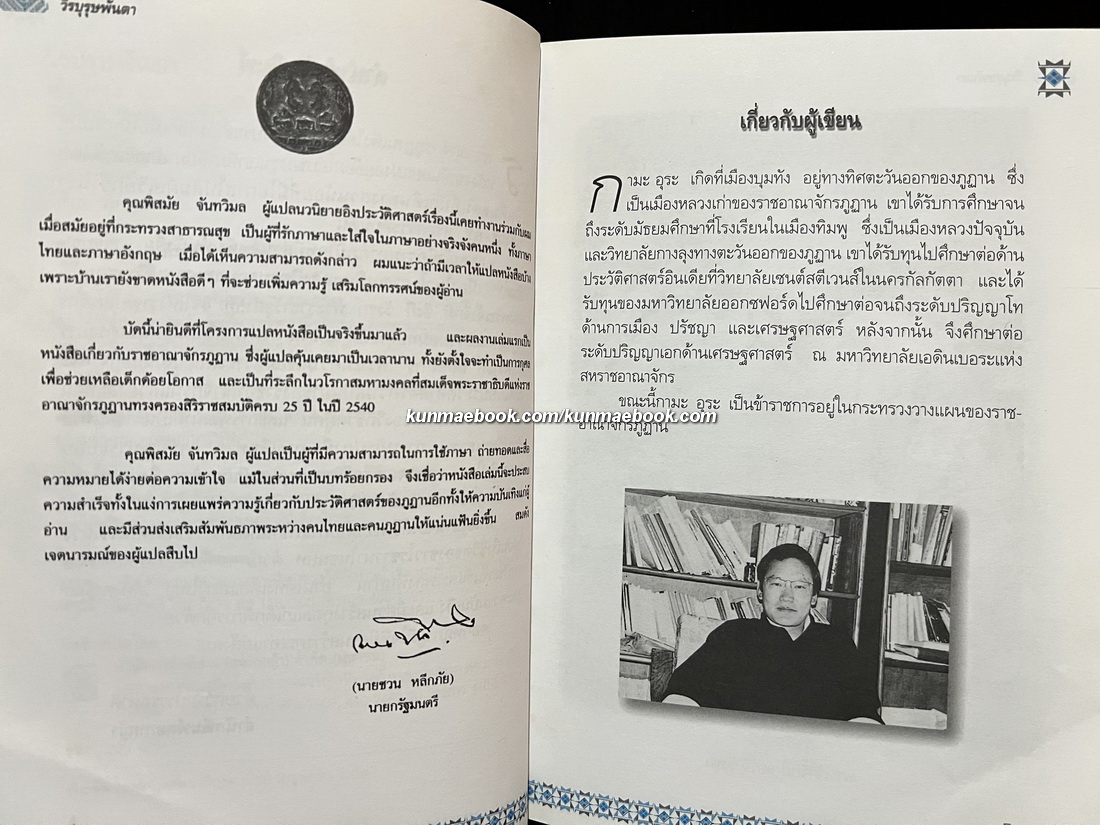 วีรบุรุษพันดา
คุณพิสมัย จันทวิมล ผู้แปลนวนิยายอิงประวัติศาสตร์เรื่องนี้เคยทำงานร่วมกับผม
เมื่อสมัยอยู่ที่กระทรวงสาธารณสุข เป็นผู้ที่รักภาษาและใส่ใจในภาษาอย่างจริงจังคนหนึ่ง ทั้งภาษา
ไทยและภาษาอังกฤษ เมื่อได้เห็นความสามารถดังกล่าว ผมแนะว่าถ้ามีเวลาให้แปลหนังสือบ้าง
เพราะบ้านเรายังขาดหนังสือดีๆ ที่จะช่วยเพิ่มความรู้ เสริมโลกทรรศน์ของผู้อ่าน
บัดนี้น่ายินดีที่โครงการแปลหนังสือเป็นจริงขึ้นมาแล้ว และผลงานเล่มแรกเป็น
หนังสือเกี่ยวกับราชอาณาจักรภูฏาน ซึ่งผู้แปลคุ้นเคยมาเป็นเวลานาน ทั้งยังตั้งใจจะทำเป็นการกุศล
เพื่อช่วยเหลือเด็กด้อยโอกาส และเป็นที่ระลึกในวโรกาสมหามงคลที่สมเด็จพระราชาธิบดีแห่งราช
อาณาจักรภูฏานทรงครองสิริราชสมบัติครบ 25 ปี ในปี 2540
คุณพิสมัย จันทวิมล ผู้แปลเป็นผู้ที่มีความสามารถในการใช้ภาษา ถ่ายทอดและสื่อ
ความหมายได้ง่ายต่อความเข้าใจ แม้ในส่วนที่เป็นบทร้อยกรอง จึงเชื่อว่าหนังสือเล่มนี้จะประสบ
ความสำเร็จทั้งในแง่การเผยแพร่ความรู้เกี่ยวกับประวัติศาสตร์ของภูฏานอีกทั้งให้ความบันเทิงแก่ผู้
อ่าน และมีส่วนส่งเสริมสัมพันธภาพระหว่างคนไทยและคนภูฏานให้แน่นแฟ้นยิ่งขึ้น สมดัง
เจตนารมณ์ของผู้แปลสืบไป
(นายชวน หลีกภัย)
นายกรัฐมนตรี
เกี่ยวกับผู้เขียน
กามะ อุระ เกิดที่เมืองบุมทัง อยู่ทางทิศตะวันออกของภูฏาน ซึ่ง
เป็นเมืองหลวงเก่าของราชอาณาจักรภูฏาน เขาได้รับการศึกษาจน
ถึงระดับมัธยมศึกษาที่โรงเรียนในเมืองทิมพู ซึ่งเป็นเมืองหลวงปัจจุบัน
และวิทยาลัยกางลุงทางตะวันออกของภูฏาน เขาได้รับทุนไปศึกษาต่อด้าน
ประวัติศาสตร์อินเดียที่วิทยาลัยเซนต์สตีเวนส์ในนครกัลกัตตา และได้
รับทุนของมหาวิทยาลัยออกซฟอร์ดไปศึกษาต่อจนถึงระดับปริญญาโท
ด้านการเมือง ปรัชญา และเศรษฐศาสตร์ หลังจากนั้น จึงศึกษาต่อ
ระดับปริญญาเอกด้านเศรษฐศาสตร์ ณ มหาวิทยาลัยเอดินเบอระแห่ง
สหราชอาณาจักร
ขณะนี้กามะ อุระ เป็นข้าราชการอยู่ในกระทรวงวางแผนของราช-
อาณาจักรภูฏาน
kunmaebook.com/kunmaebook.com